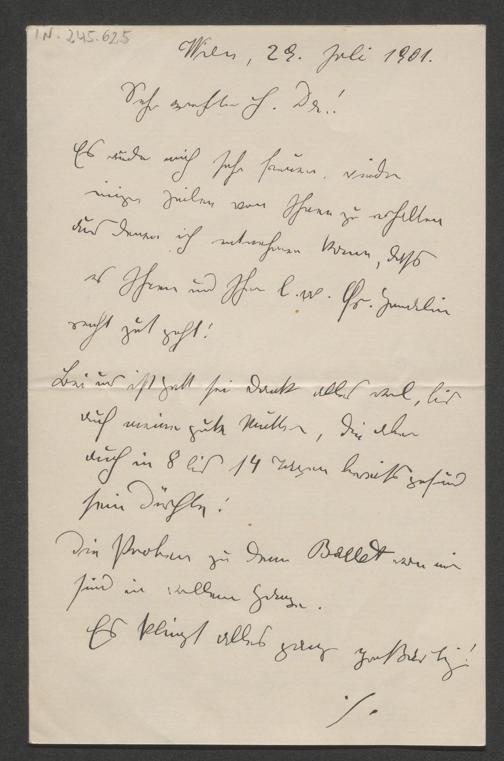 IN. 245.625
Wien, 29. Juli 1901.
Sehr geehrter H. Dr.!
Es würde mich sehr freuen, wieder
einige Zeilen von Ihnen zu erhalten
aus denen ich entnehmen kann, daß
es Ihnen und Ihrer l. w. Fr. Gemalin
recht gut geht!
Bei uns ist Gott sei Dank alles wol, bis
auf meine gute Mutter, die aber
auch in 8 bis 14 Tagen bereits gesund
sein dürfte!
Die Proben zu dem Ballet von mir
sind in vollem Gange.
Es klingt alles ganz großartig!
./.